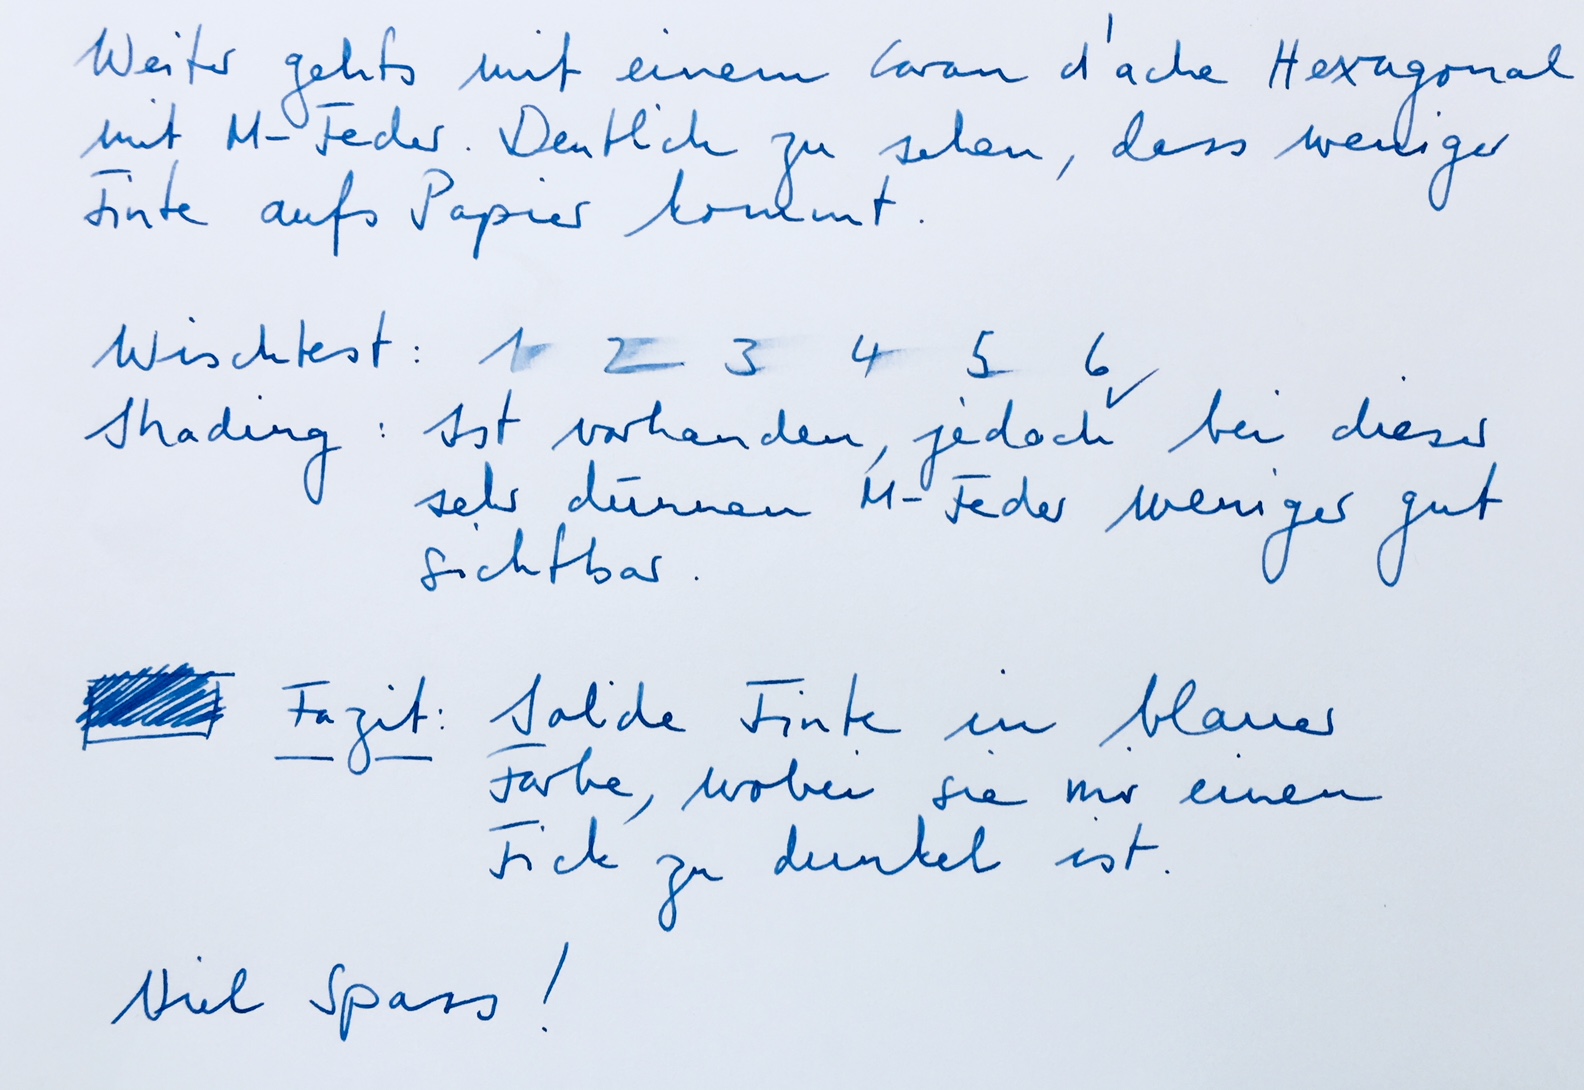 Weiter gehts mit einem Caran d'ache Hexagonal
mit M-Feder. Deutlich zu sehen, dass weniger
Tinte aufs Papier kommt.
Wischtest: 1 2 3 4 5 6 ✓
Shading: Ist vorhanden, jedoch bei dieser
sehr dünnen M-Feder weniger gut
sichtbar.
Fazit: Solide Tinte in blauer
Farbe, wobei sie mir einen
Tick zu dunkel ist.
Viel Spass!